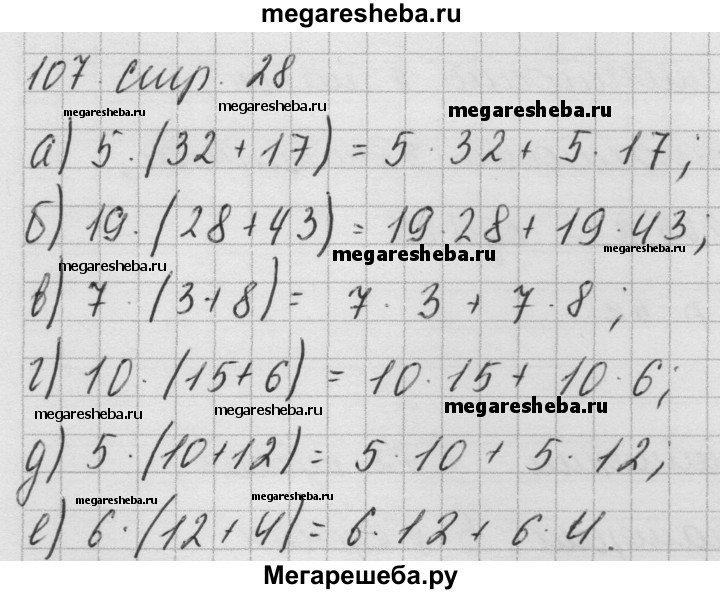 megaresheba.ru
107 стр. 28
megaresheba.ru megaresheba.ru megaresheba.ru
а) 5 · (32 + 17) = 5 · 32 + 5 · 17;
б) 19 · (28 + 43) = 19 · 28 + 19 · 43;
megaresheba.ru megaresheba.ru megaresheba.ru
в) 7 · (3 + 8) = 7 · 3 + 7 · 8;
г) 10 · (15 + 6) = 10 · 15 + 10 · 6;
megaresheba.ru megaresheba.ru megaresheba.ru
д) 5 · (10 + 12) = 5 · 10 + 5 · 12;
megaresheba.ru megaresheba.ru
е) 6 · (12 + 4) = 6 · 12 + 6 · 4.
Мегарешеба.ру